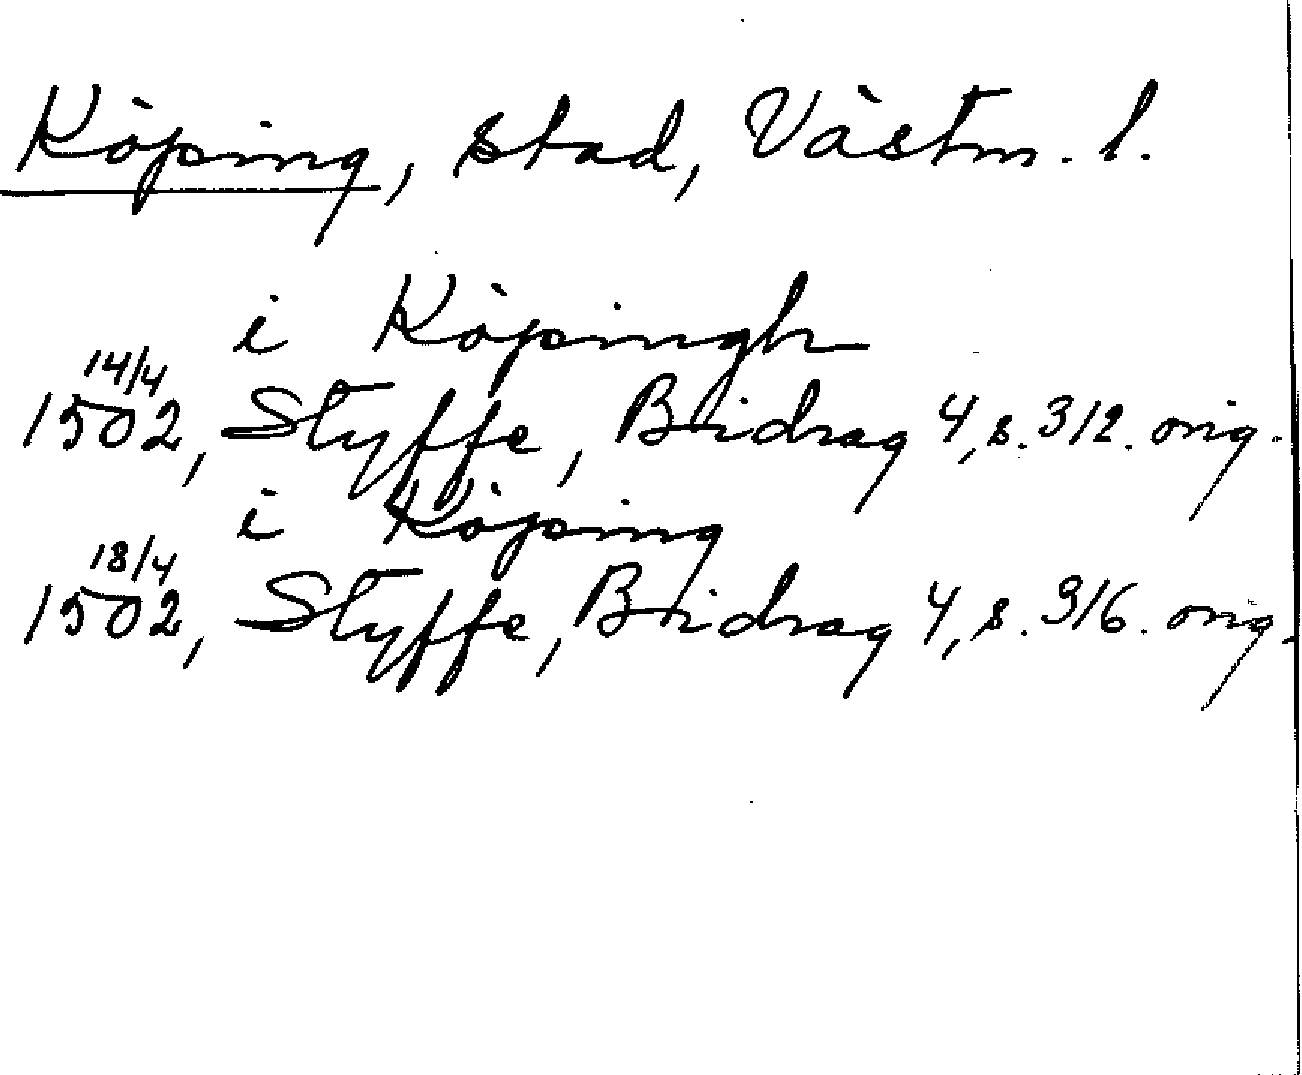 Köping, stad, Västm. l.
i Köpingh
14/4
1502, Styffe, Bidrag 4, s. 312. orig.
i Köping
18/4
1502, Styffe, Bidrag 4, s. 316. orig.